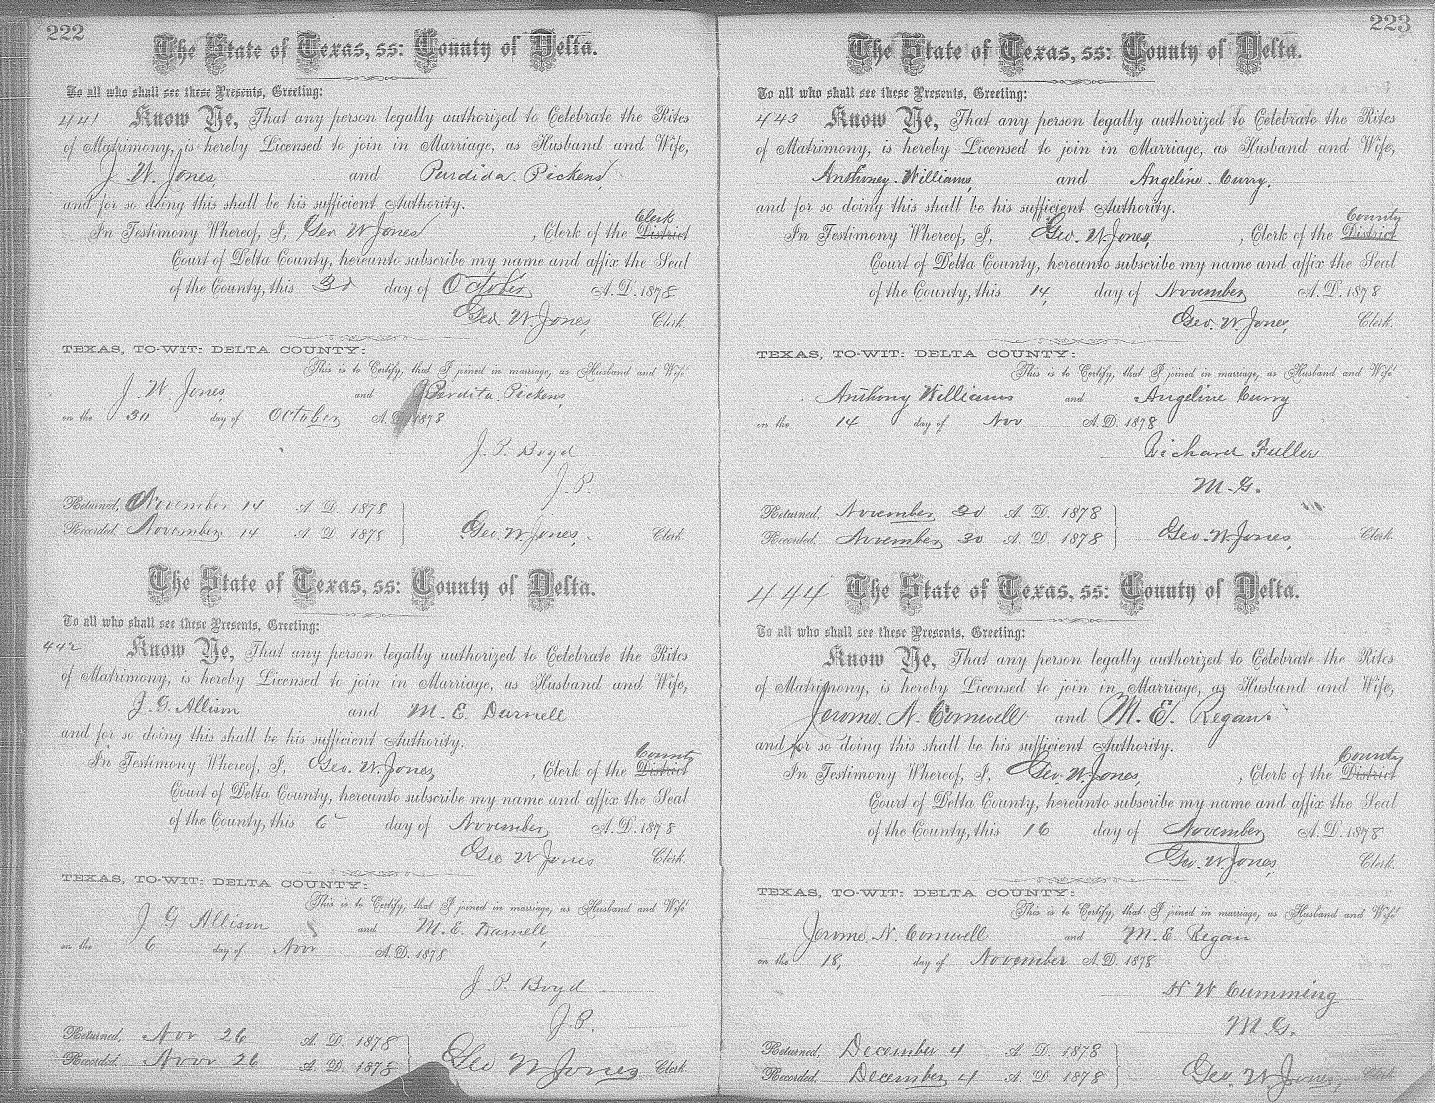 222
The State of Texas, ss: County of Delta.
To all who shall see these Presents, Greeting:
441 Know Ye, That any person legally authorized to Celebrate the Rites
of Matrimony, is hereby Licensed to join in Marriage, as Husband and Wife,
J. W. Jones, and Purdida Pickens,
and for so doing this shall be his sufficient Authority.
In Testimony Whereof, I, Geo W Jones, Clerk of the Clerk District
Court of Delta County, hereunto subscribe my name and affix the Seal
of the County, this 30 day of October A. D. 1878
Geo. W. Jones, Clerk.
TEXAS, TO-WIT: DELTA COUNTY:
This is to Certify, that I joined in marriage, as Husband and Wife
J. W. Jones, and Purdita Pickens,
on the 30 day of October A. D. 1878
J. P. Boyd
J. P.
Returned, November 14 A. D. 1878
Recorded, November 14 A. D. 1878 Geo. W. Jones, Clerk.
The State of Texas, ss: County of Delta.
To all who shall see these Presents, Greeting:
442 Know Ye, That any person legally authorized to Celebrate the Rites
of Matrimony, is hereby Licensed to join in Marriage, as Husband and Wife,
J. G. Allison and M. E. Darnell
and for so doing this shall be his sufficient Authority.
In Testimony Whereof, I, Geo. W. Jones, Clerk of the County District
Court of Delta County, hereunto subscribe my name and affix the Seal
of the County, this 6 day of November, A. D. 1878
Geo W Jones Clerk.
TEXAS, TO-WIT: DELTA COUNTY:
This is to Certify, that I joined in marriage, as Husband and Wife
J G Allison and M. E. Darnell,
on the 6 day of Nov A. D. 1878
J. P. Boyd
J. P.
Returned, Nov 26 A. D. 1878
Recorded, Nov 26 A. D. 1878 Geo W Jones Clerk
223
The State of Texas, ss: County of Delta.
To all who shall see these Presents, Greeting:
443 Know Ye, That any person legally authorized to Celebrate the Rites
of Matrimony, is hereby Licensed to join in Marriage, as Husband and Wife,
Anthoney Williams, and Angeline Curry.
and for so doing this shall be his sufficient Authority.
In Testimony Whereof, I, Geo. W. Jones, Clerk of the County District
Court of Delta County, hereunto subscribe my name and affix the Seal
of the County, this 14, day of November A. D. 1878
Geo. W. Jones, Clerk.
TEXAS, TO-WIT: DELTA COUNTY:
This is to Certify, that I joined in marriage, as Husband and Wife
Anthony Williams and Angeline Curry
on the 14 day of Nov A. D. 1878
Richard Fuller
M. G.
Returned, November 30 A. D. 1878
Recorded, November 30 A. D. 1878 Geo. W. Jones, Clerk.
444 The State of Texas, ss: County of Delta.
To all who shall see these Presents, Greeting:
Know Ye, That any person legally authorized to Celebrate the Rites
of Matrimony, is hereby Licensed to join in Marriage, as Husband and Wife,
Jerome. N. Cornwell and M. E. Regan.
and for so doing this shall be his sufficient Authority.
In Testimony Whereof, I, Geo. W. Jones, Clerk of the County District
Court of Delta County, hereunto subscribe my name and affix the Seal
of the County, this 16 day of November A. D. 1878
Geo. W Jones, Clerk.
TEXAS, TO-WIT: DELTA COUNTY:
This is to Certify, that I joined in marriage, as Husband and Wife
Jerome N. Cornwell and M. E Regan
on the 18, day of November A. D. 1878
H W Cumming
M. G.
Returned, December 4 A. D. 1878
Recorded, December 4 A. D. 1878 Geo. W Jones, Clerk